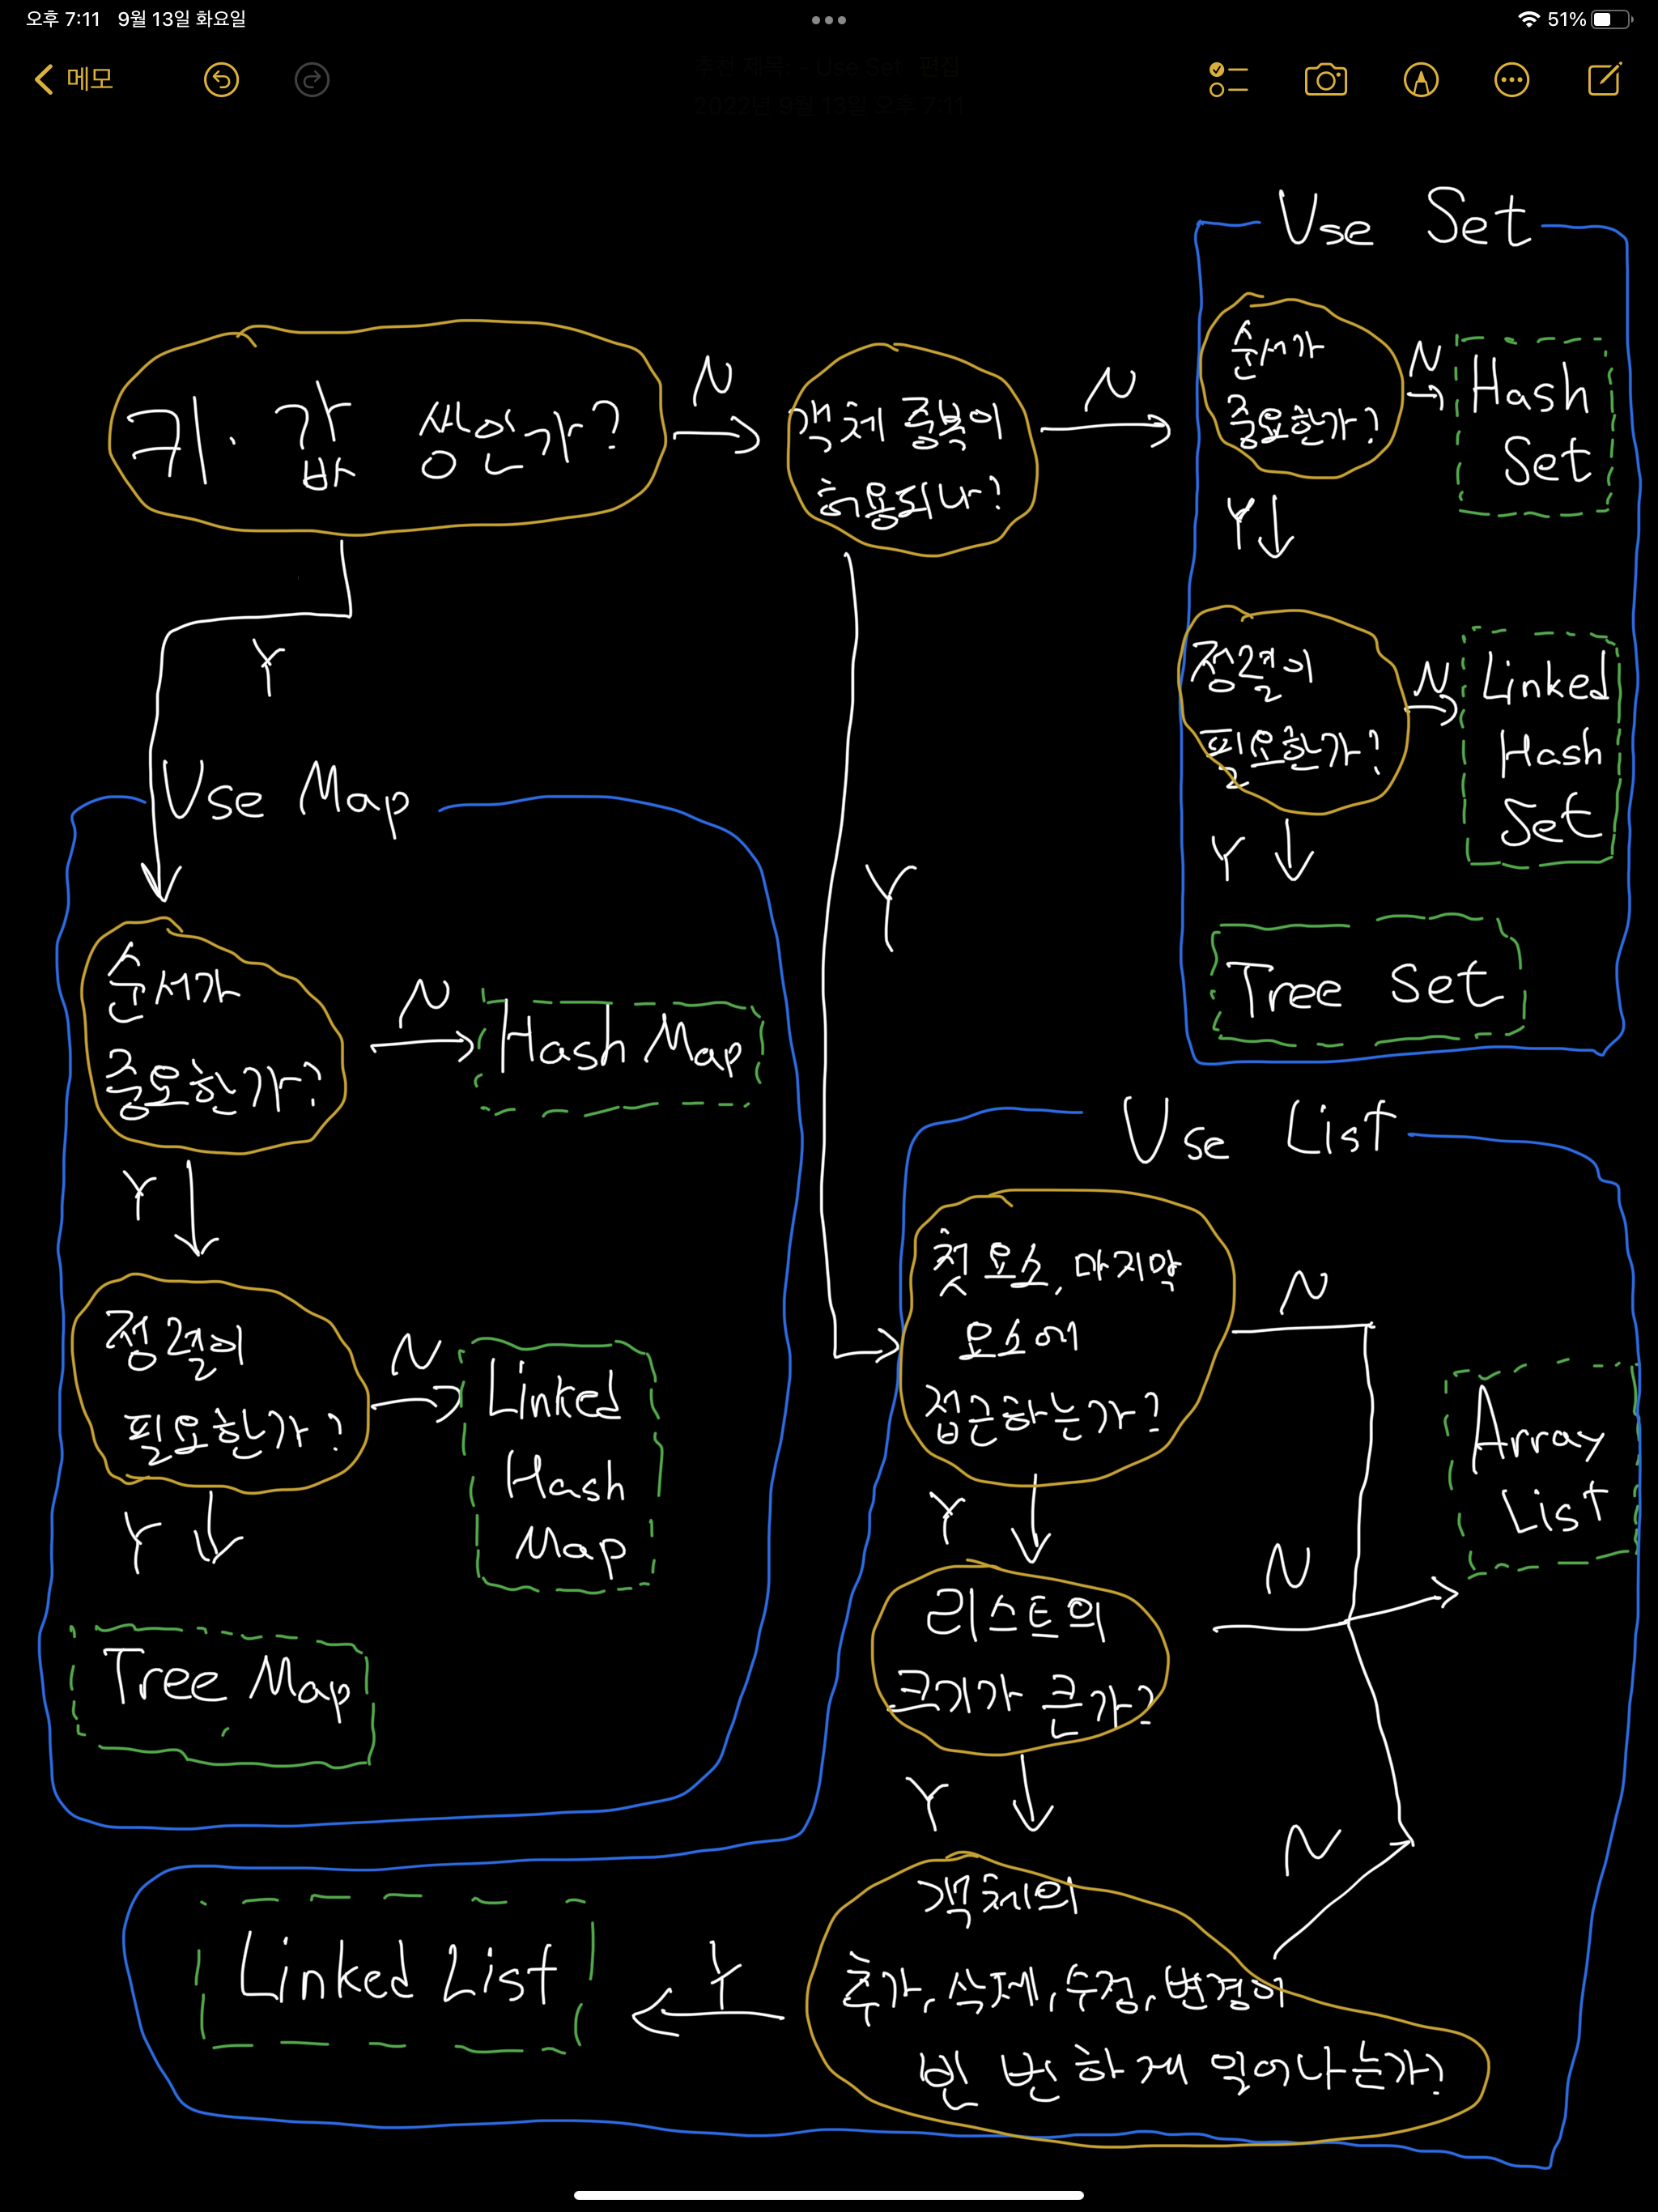 오후 7:11 9월 13일 화요일
51%
메모
추천 제목: - Use Set 편집
2022년 9월 13일 오후 7:11
Use Set
키·값 쌍인가?
N
객체 중복이
허용되나?
N
순서가
중요한가?
N
Hash
Set
Y
정렬이
필요한가?
N
Linked
Hash
Set
Y
Tree Set
Y
Use Map
순서가
중요한가?
N
Hash Map
Y
정렬이
필요한가?
N
Linked
Hash
Map
Y
Tree Map
Y
Use List
첫 요소, 마지막
요소에
접근하는가?
N
Array
List
Y
리스트의
크기가 큰가?
N
Y
객체의
추가, 삭제, 수정, 변경이
빈번하게 일어나는가?
N
Y
Linked List